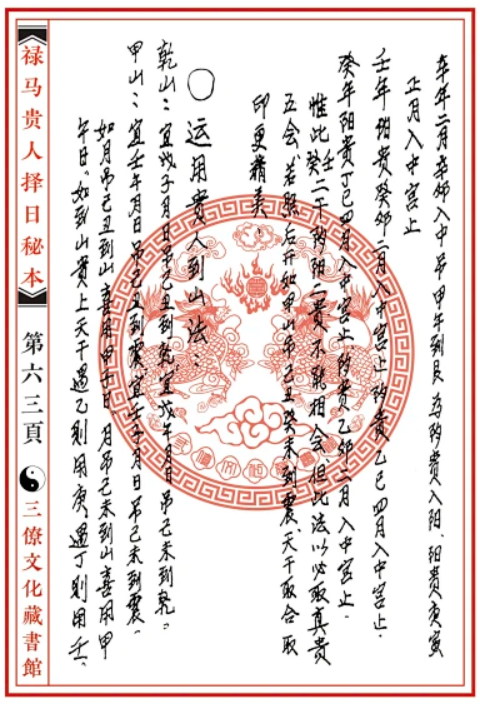 辛年二月辛卯入中吊甲午到艮为阴贵入阳、阳贵庚寅
正月入中宫止
壬年阳贵癸卯二月入中宫止阴贵乙巳四月入中宫止.
癸年阳贵丁巳四月入中宫止阴贵乙卯二月入中宫止.
惟此壬癸二干阴阳二贵不能相会、但此法以必取真贵
五会、若照后开如甲山吊己丑癸未到震、天干取合取
印更精美、
〇 运用贵人到山法:
乾山:宜戊子月日吊己丑到乾、宜戊午月日吊己未到乾。
甲山:宜壬年月日吊己丑到震、宜壬子月日吊己未到震。
如月吊己丑到山喜用甲子日、月吊己未到山喜用甲
午日、如到山贵上天干遇乙则用庚、遇丁则用壬、
禄马贵人择日秘本
第六三頁
三僚文化藏書館